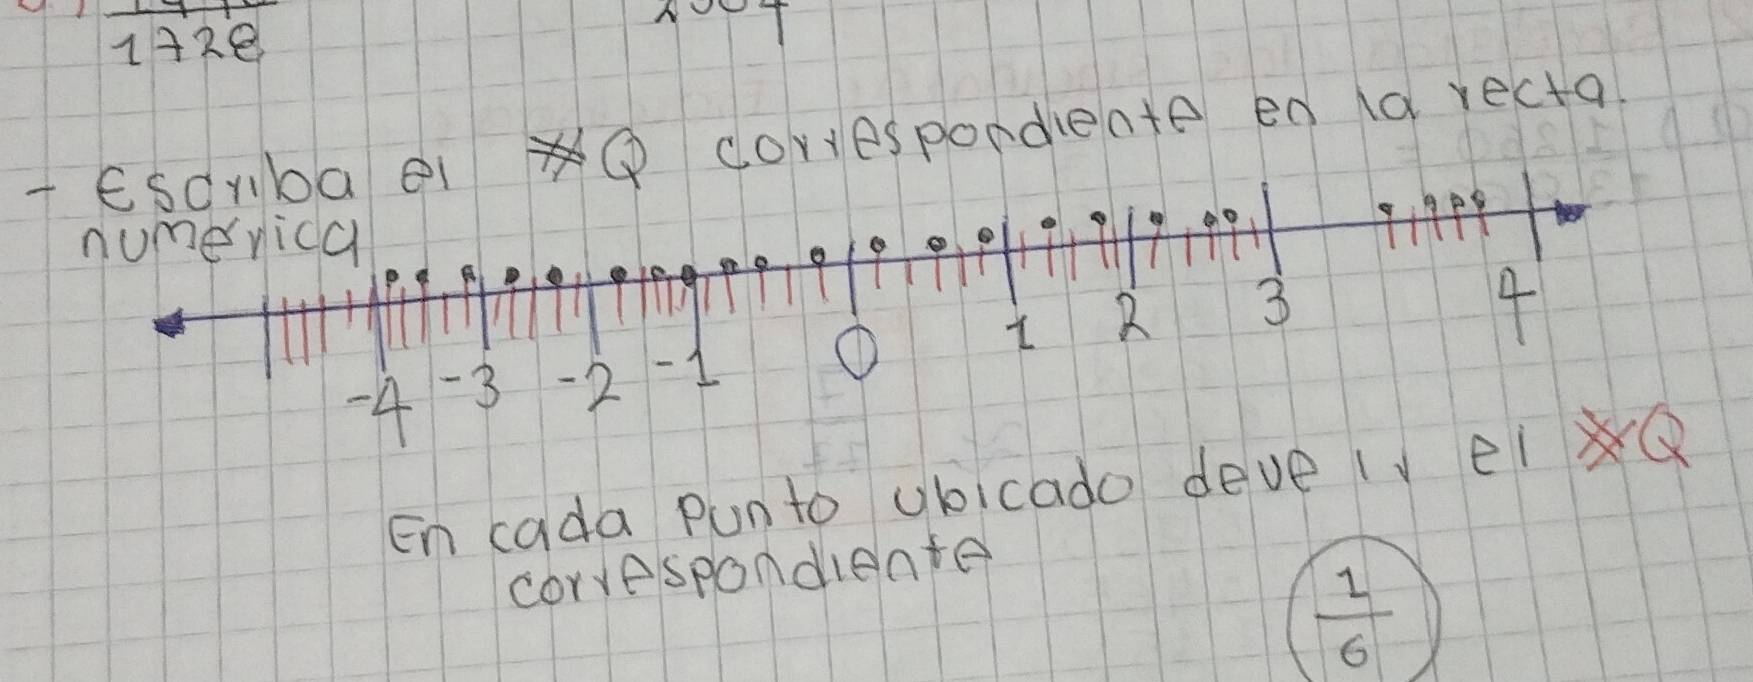 1728
- Escriba el #Q correspondiente en la recta
numerica
-4 -3 -2 -1 0 1 2 3 4
En cada punto ubicado deve ir el #Q
correspondiente
1
6